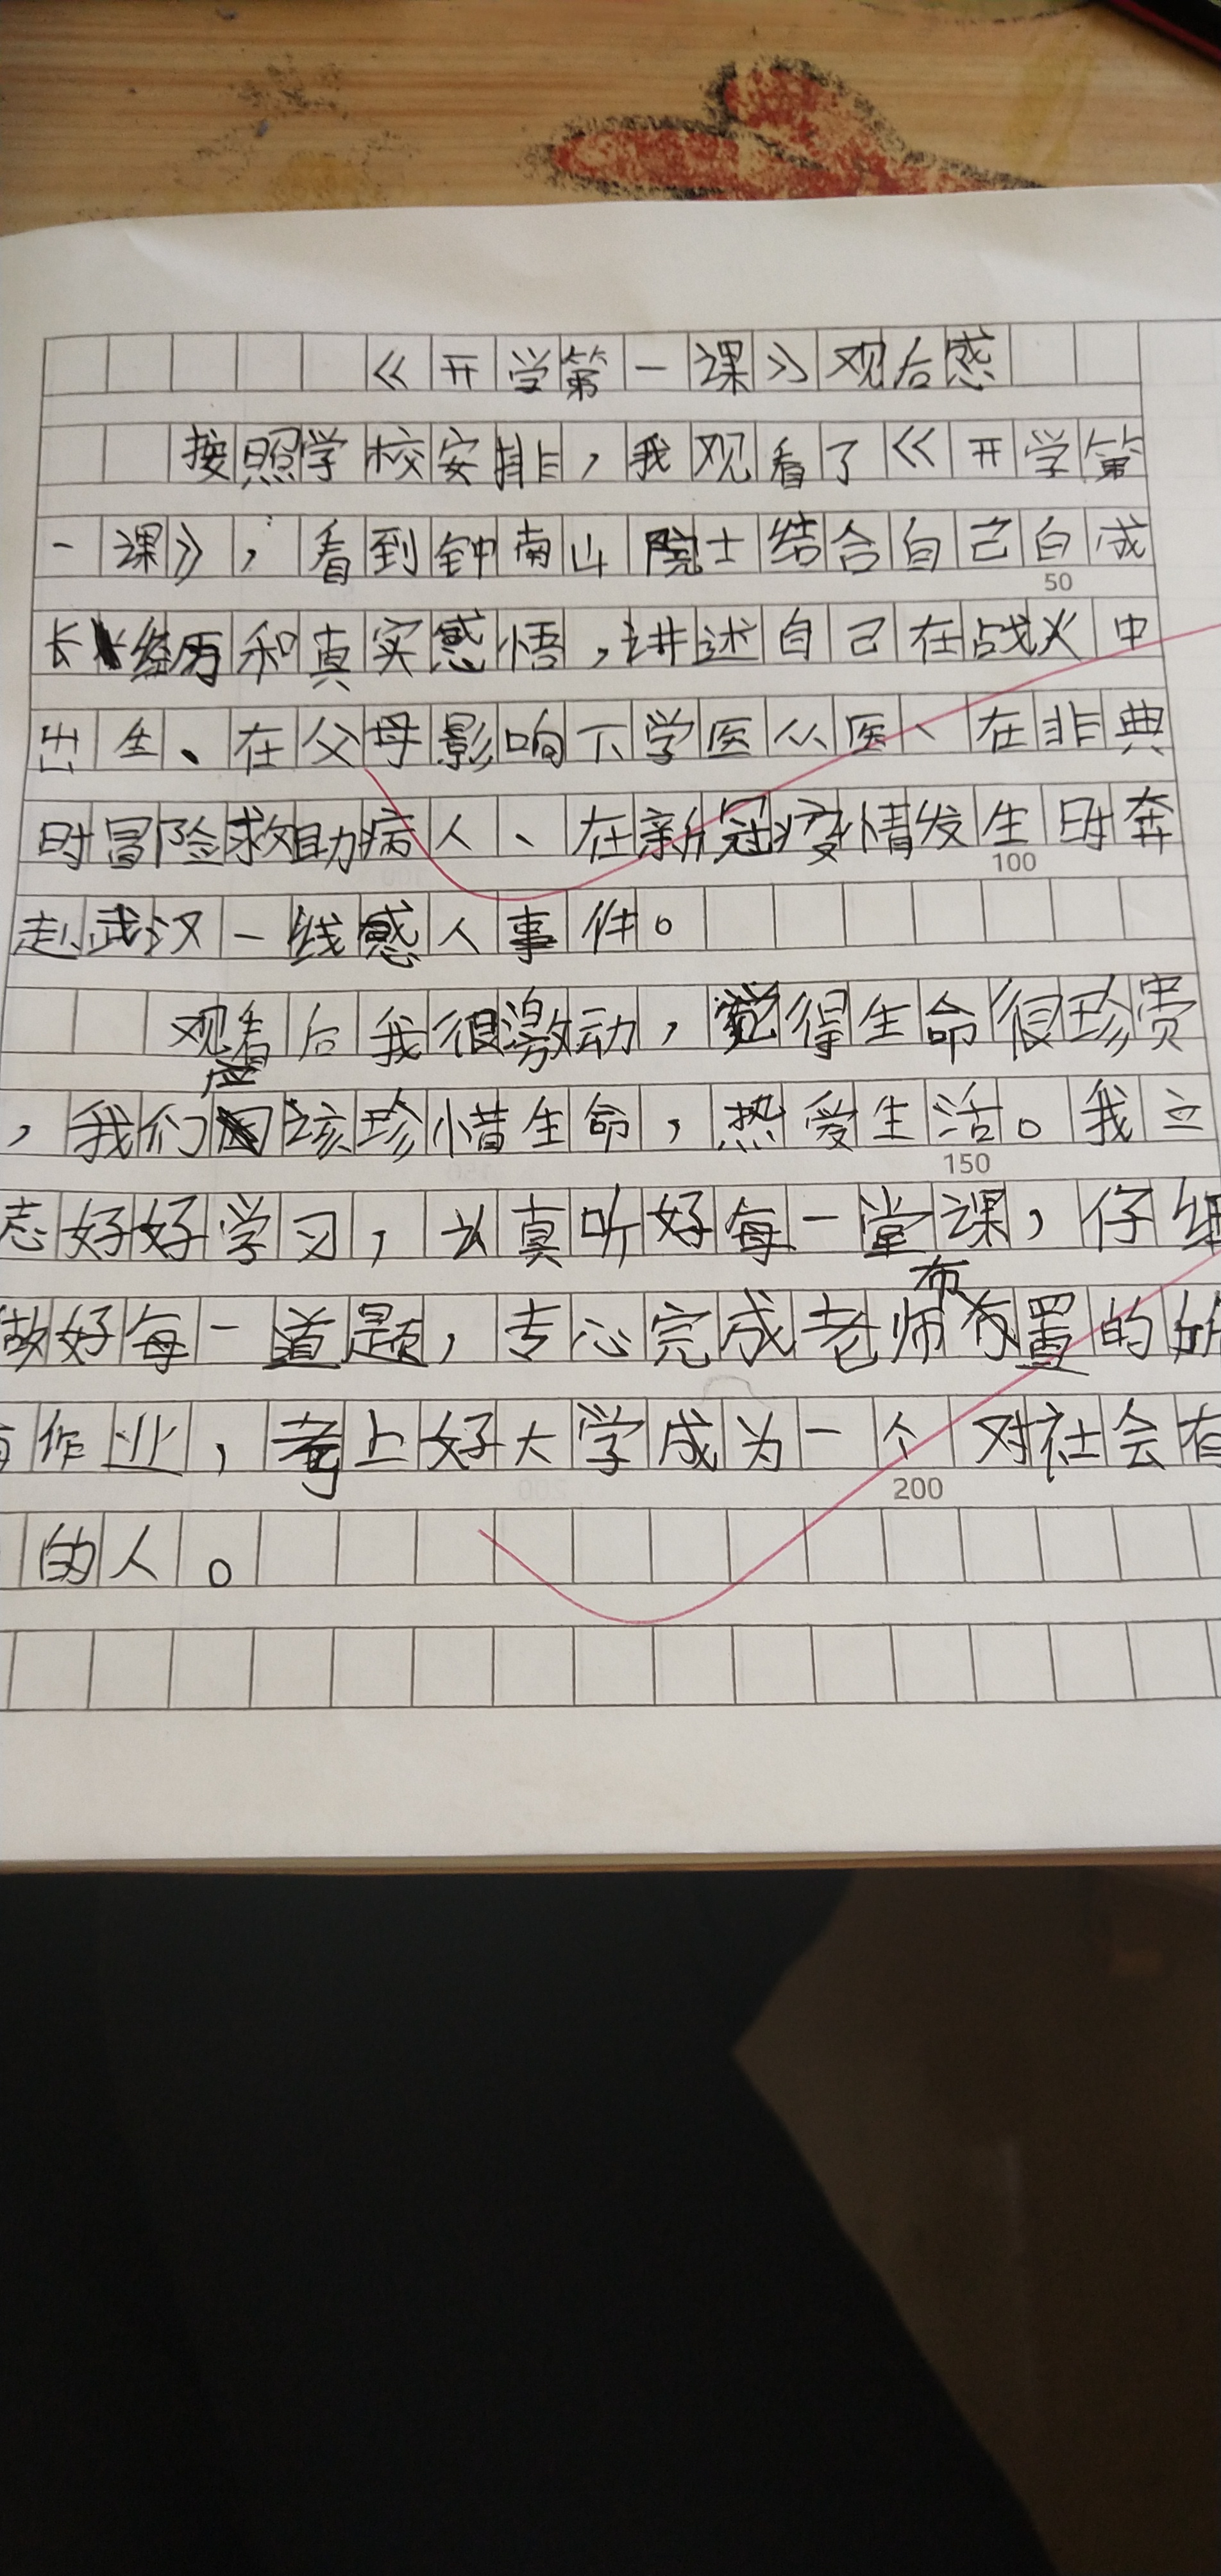 《开学第一课》观后感
按照学校安排，我观看了《开学第
一课》，看到钟南山院士结合自己白成
长经历和真实感悟，讲述自己在战火中
出生、在父母影响下学医从医、在非典
时冒险救助病人、在新冠疫情发生时奔
赴武汉一线感人事件。
观看后我很激动，觉得生命很珍贵
，我们应该珍惜生命，热爱生活。我立
志好好学习，认真听好每一堂课，仔细
做好每一道题，专心完成老师布置的所
有作业，考上好大学成为一个对社会有
的人。
50
100
150
200